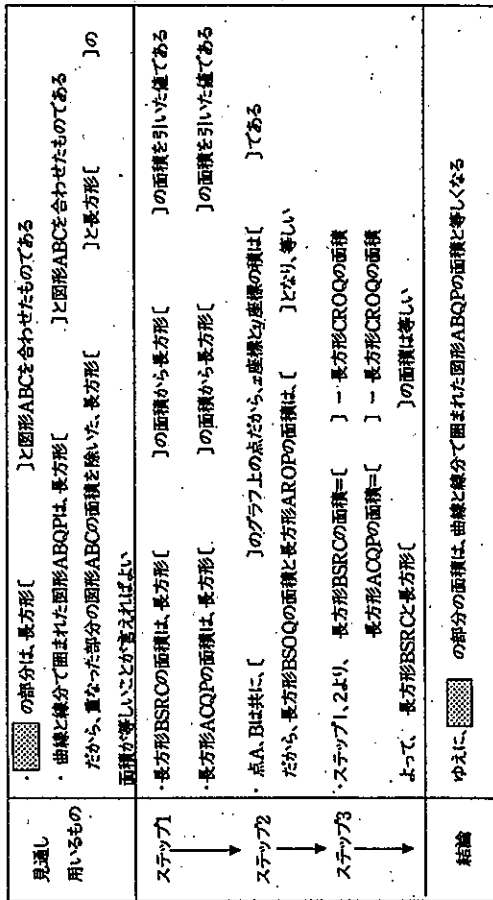 見通し
用いるもの
・ の部分は、長方形[ ]と図形ABCを合わせたものである
・曲線と線分で囲まれた図形ABQPは、長方形[ ]と図形ABCを合わせたものである
だから、重なった部分の図形ABCの面積を除いた、長方形[ ]と長方形[ ]の
面積が等しいことが言えればよい
ステップ1
・長方形BSRCの面積は、長方形[ ]の面積から長方形[ ]の面積を引いた値である
・長方形ACQPの面積は、長方形[ ]の面積から長方形[ ]の面積を引いた値である
ステップ2
・点A、Bは共に、[ ]のグラフ上の点だから、x座標とy座標の積は[ ]である
だから、長方形BSOQの面積と長方形AROPの面積は、[ ]となり、等しい
ステップ3
・ステップ1、2より、長方形BSRCの面積=[ ]-長方形CROQの面積
長方形ACQPの面積=[ ]-長方形CROQの面積
よって、長方形BSRCと長方形[ ]の面積は等しい
結論
ゆえに、 の部分の面積は、曲線と線分で囲まれた図形ABQPの面積と等しくなる